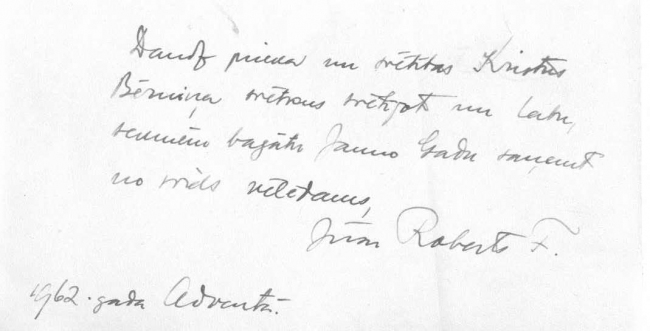 Daudz prieka un svētītas Kristus
Bērniņa svētkus svētījot un labu,
bagātu Jauno Gadu saņemt
no sirds vēlēdams,
Jūsu Roberts F.
1962. gada Adventā.